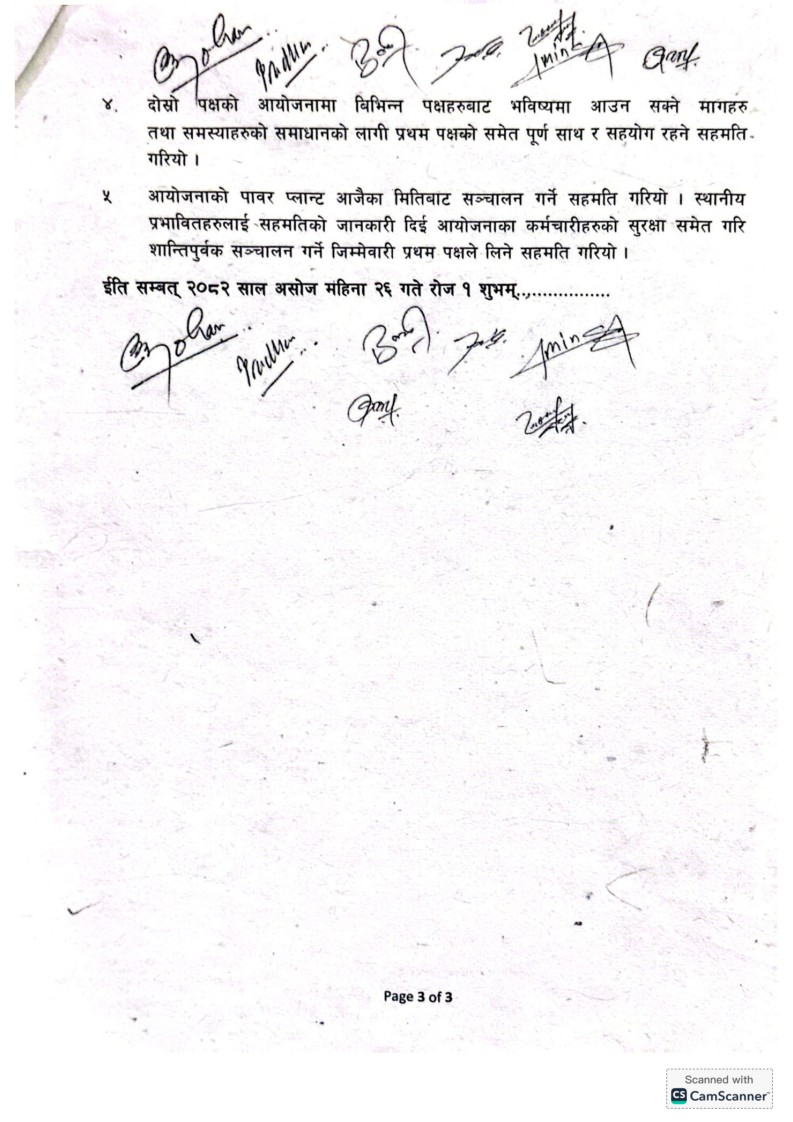 ४. दोस्रो पक्षको आयोजनामा बिभिन्न पक्षहरुबाट भविष्यमा आउन सक्ने मागहरु
तथा समस्याहरुको समाधानको लागी प्रथम पक्षको समेत पूर्ण साथ र सहयोग रहने सहमति
गरियो ।
५ आयोजनाको पावर प्लान्ट आजैका मितिबाट सञ्चालन गर्ने सहमति गरियो । स्थानीय
प्रभावितहरुलाई सहमतिको जानकारी दिई आयोजनाका कर्मचारीहरुको सुरक्षा समेत गरि
शान्तिपुर्वक सञ्चालन गर्ने जिम्मेवारी प्रथम पक्षले लिने सहमति गरियो ।
ईति सम्बत् २०८२ साल असोज महिना २६ गते रोज १ शुभम्..,...............
Page 3 of 3
Scanned with
CS CamScanner